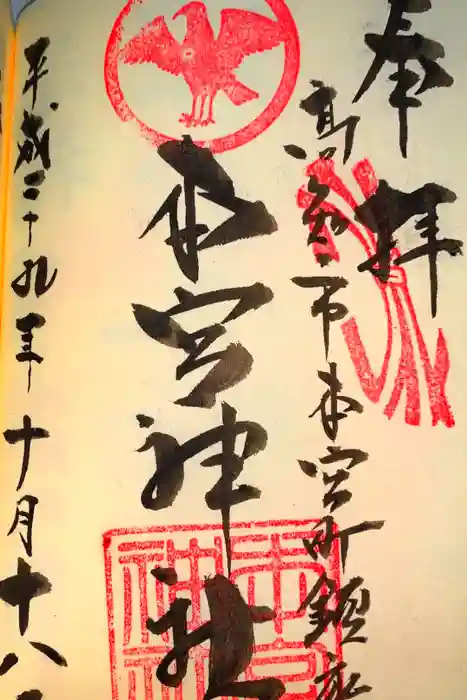 奉拝
高知市本宮町鎮座
本宮神社
平成二十九年十月十八